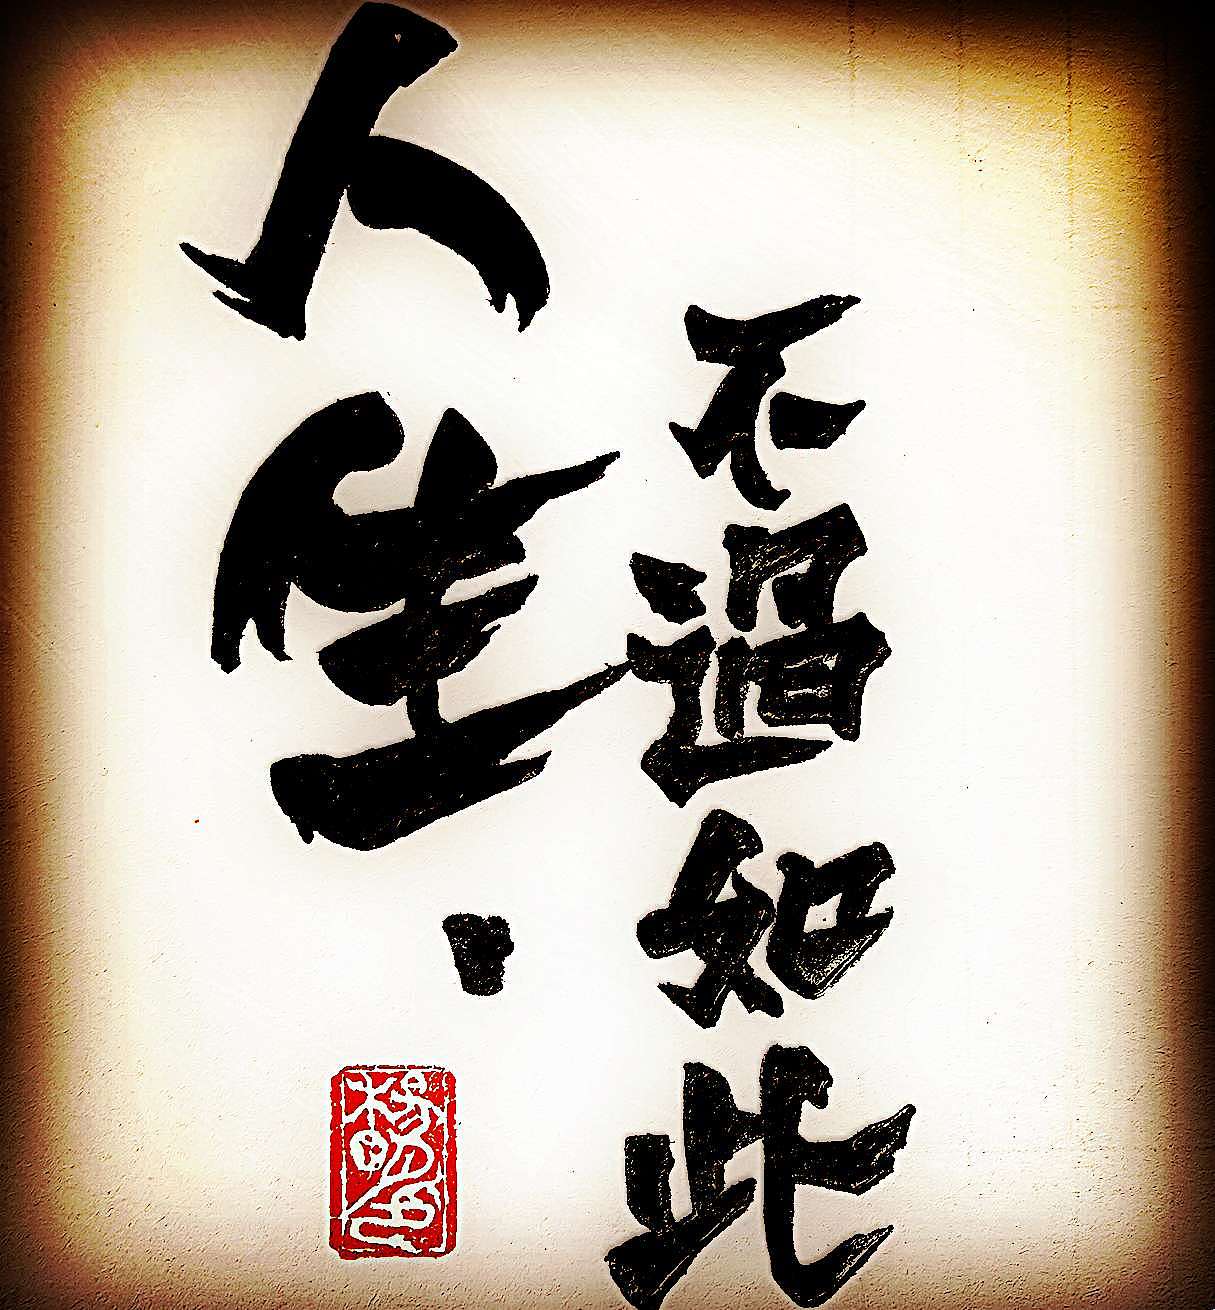 人生.
不过如此